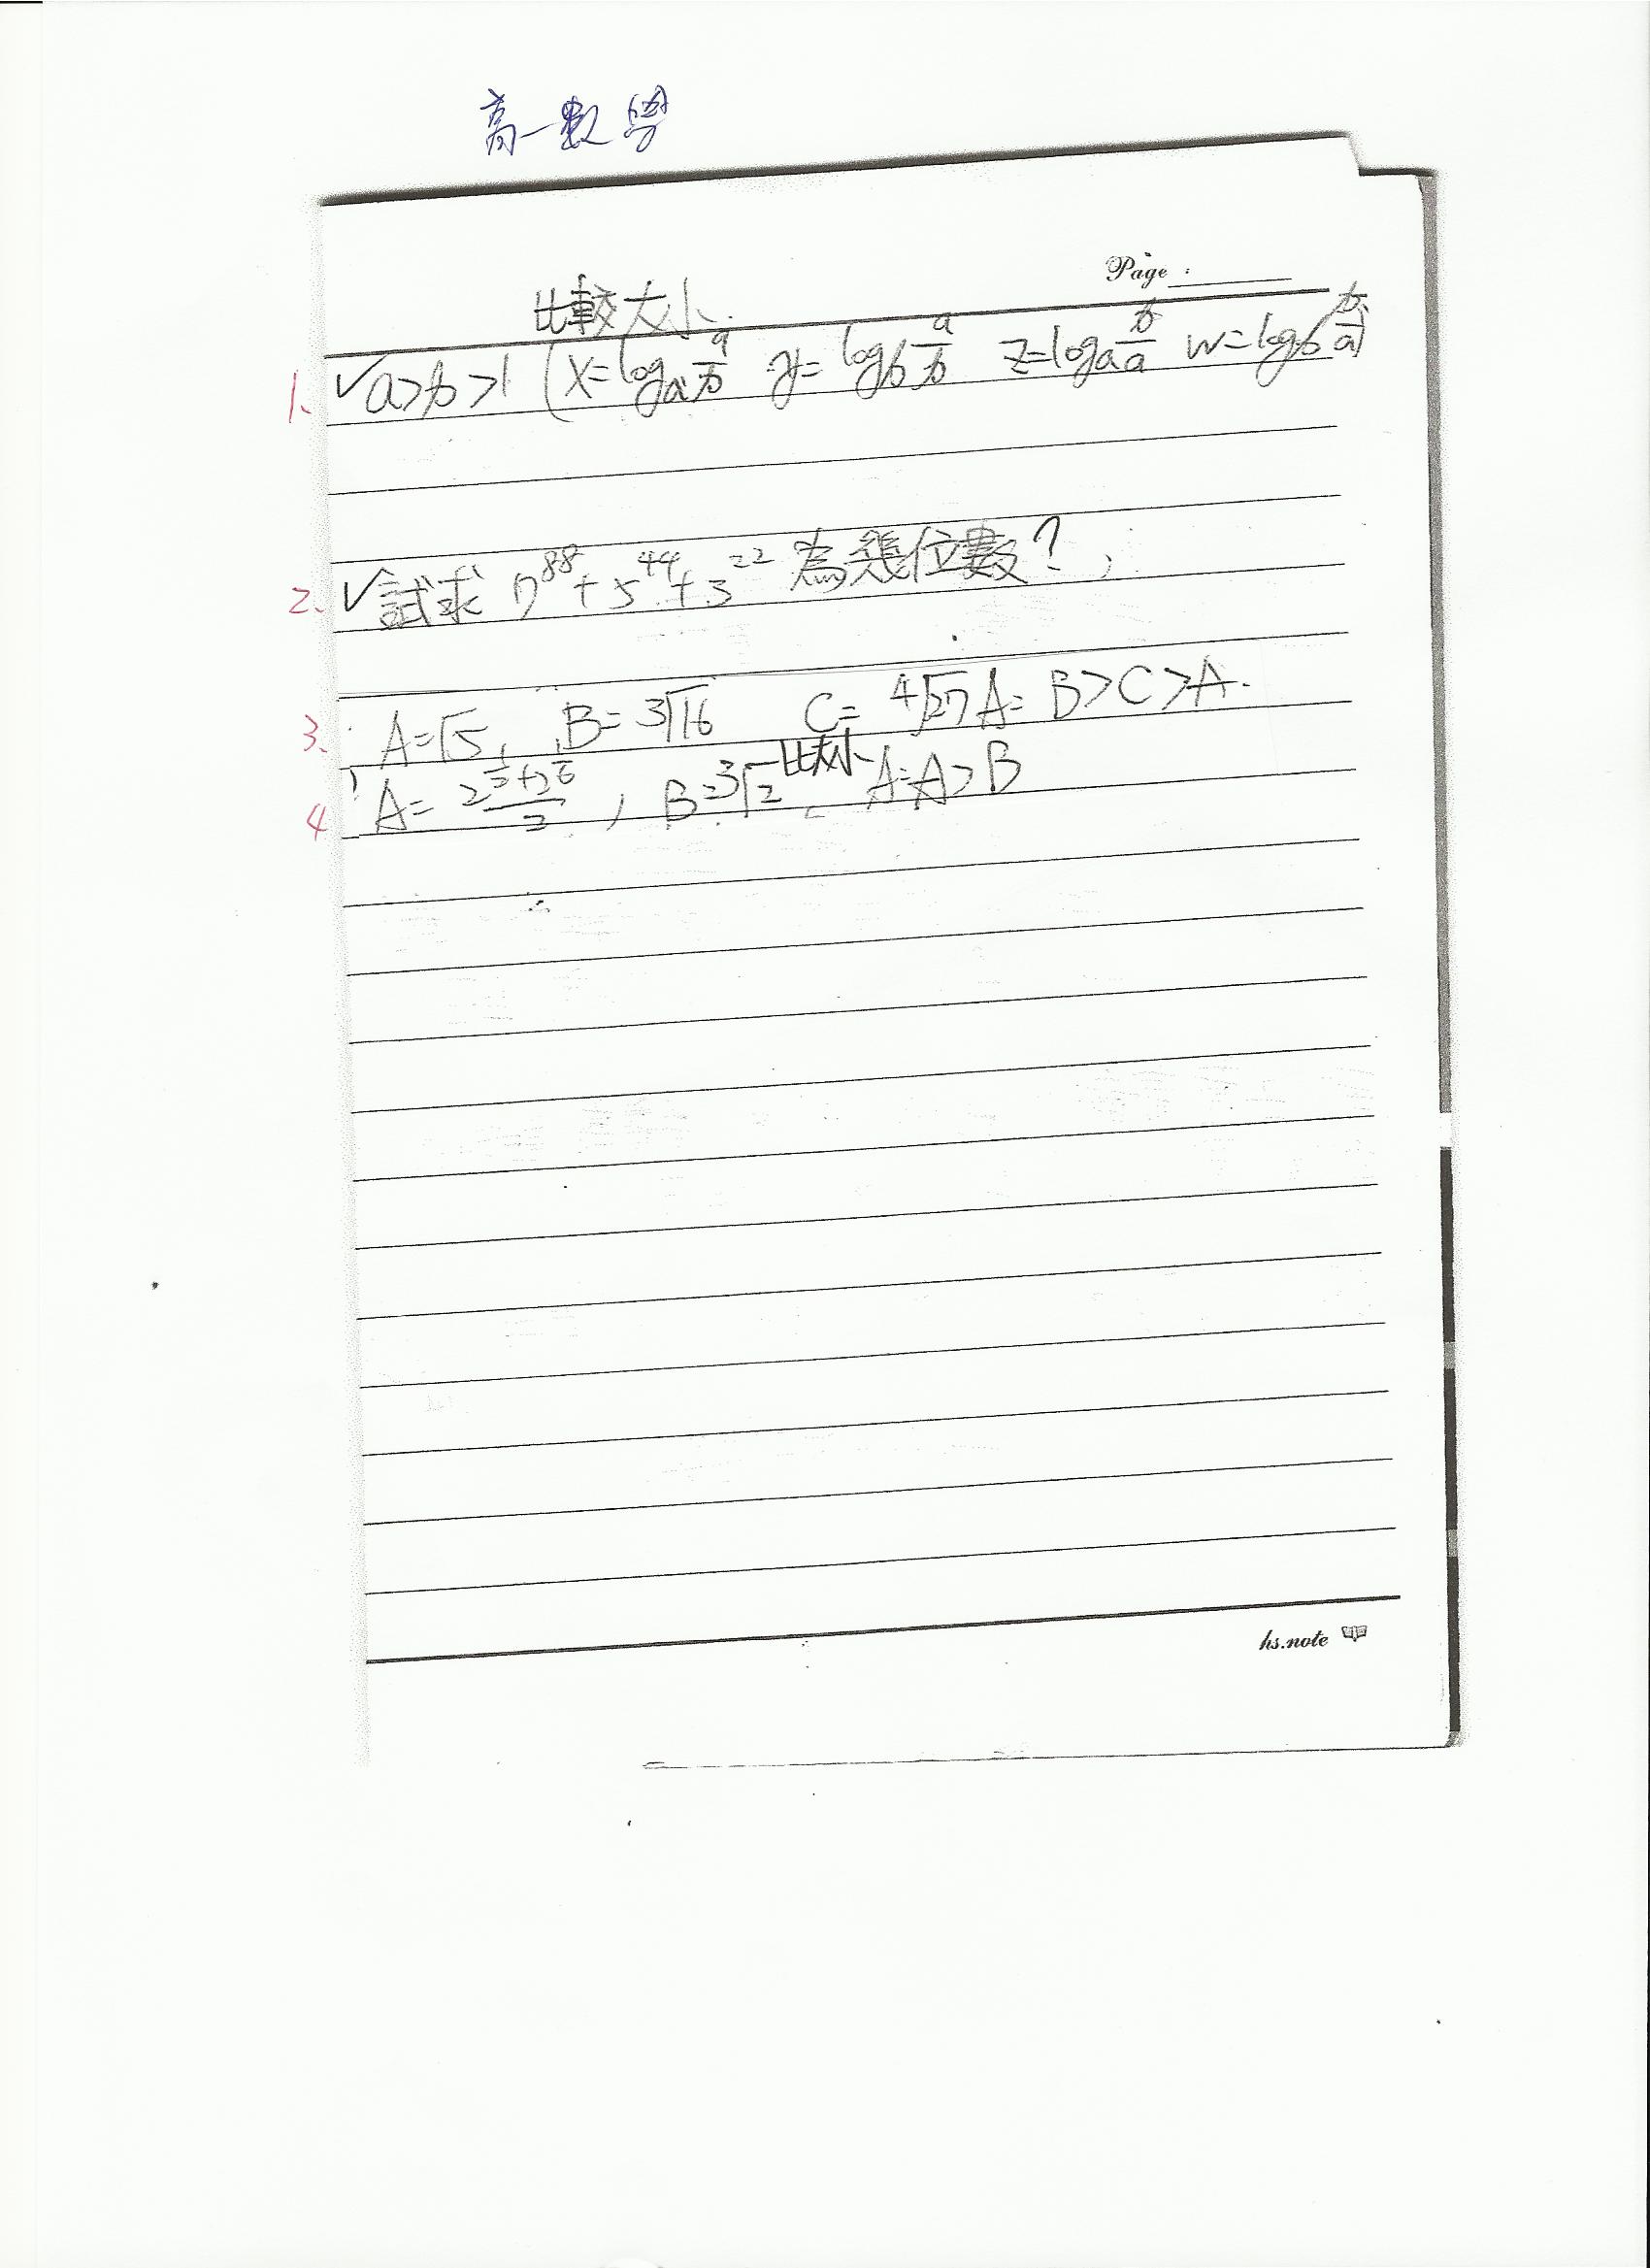 高一數學
Page :
比較大小
1. ✓a>b>1 (x=logₐ a/b y=log_b a/b z=logₐ b/a w=log_b b/a)
2. ✓試求 7⁸⁸+5⁴⁴+3²² 為幾位數?
3. A=√5, B=³√16 C=⁴√27 A= B>C>A.
4 A= , B=³√2 比大小 A=A>B
hs.note